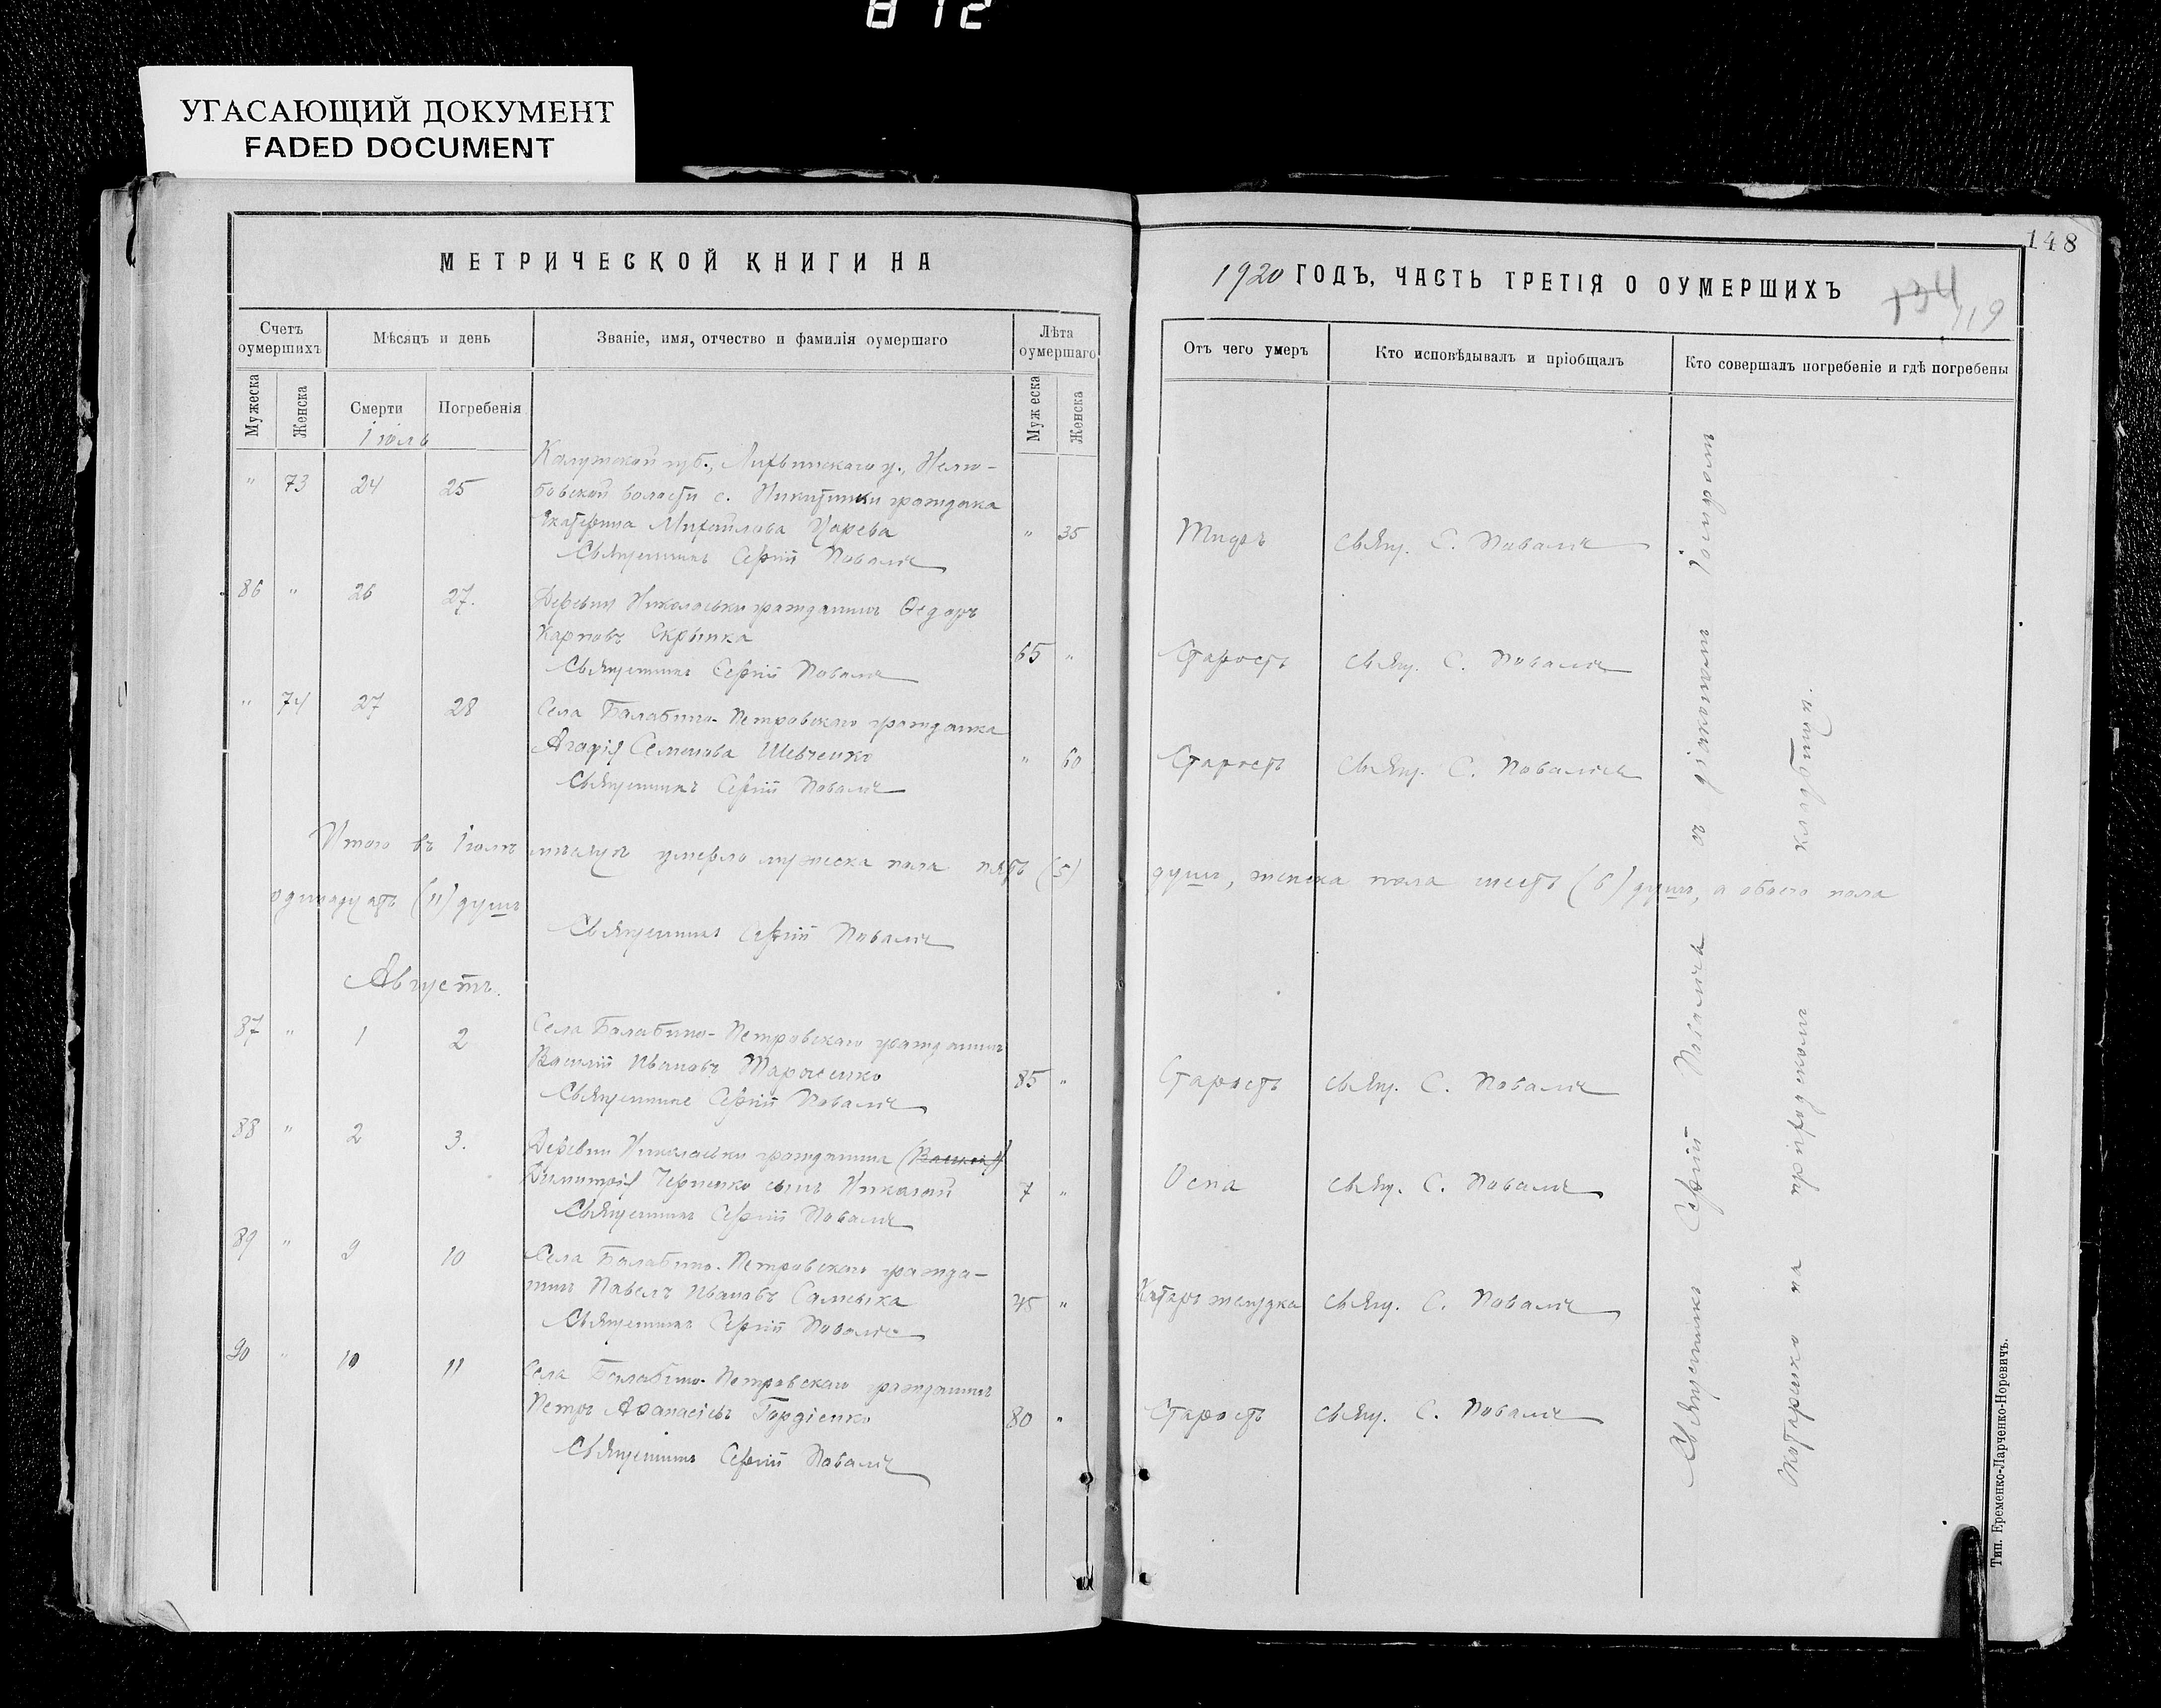 812
УГАСАЮЩИЙ ДОКУМЕНТ
FADED DOCUMENT
148
МЕТРИЧЕСКОЙ КНИГИ НА
1920 ГОДЪ, ЧАСТЬ ТРЕТІЯ О ОУМЕРШИХЪ
134
119
Счетъ оумершихъ
Мѣсяцъ и день
Званіе, имя, отчество и фамилія оумершаго
Лѣта оумершаго
Отъ чего умеръ
Кто исповѣдывалъ и пріобщалъ
Кто совершалъ погребеніе и гдѣ погребены
Мужеска
Женска
Смерти
Погребенія
Мужеска
Женска
Іюль
Калужской губ., Лихвинскаго у.,
" 73 24 25 волости с. Никитинки гражданка
Екатерина Михайлова Царева " 35 Тифъ Свящ. С. Повалій
Священникъ Сергій Повалій
86 " 26 27. Деревни Николаевки гражданинъ Ѳедоръ
Карповъ Скрынка 65 " Старость Свящ. С. Повалій
Священникъ Сергій Повалій
" 74 27 28 Села Балабино-Петровскаго гражданка
Агафія Семенова Шевченко " 60 Старость Свящ. С. Повалій
Священникъ Сергій Повалій
Итого въ Іюлѣ мѣсяцѣ умерло мужеска пола пять (5) душъ, женска пола шесть (6) душъ, а обоего пола
одинадцать (11) душъ
Священникъ Сергій Повалій
Августъ.
87 " 1 2 Села Балабино-Петровскаго гражданинъ
Василій Ивановъ Тарасенко 85 " Старость Свящ. С. Повалій
Священникъ Сергій Повалій
88 " 2 3. Деревни Николаевки гражданина
Димитрія Черненко сынъ Николай 7 " Оспа Свящ. С. Повалій
Священникъ Сергій Повалій
89 " 9 10 Села Балабино-Петровскаго гражда-
нинъ Павелъ Ивановъ 45 " Катаръ желудка Свящ. С. Повалій
Священникъ Сергій Повалій
90 " 10 11 Села Балабино-Петровскаго гражданинъ
Петръ Аѳанасіевъ Гордіенко 80 " Старость Свящ. С. Повалій
Священникъ Сергій Повалій
Священникъ Сергій Повалій съ діакономъ Іаковомъ
на приходскомъ кладбищѣ.
Тип. Еременко-Ларченко-Норевичъ.